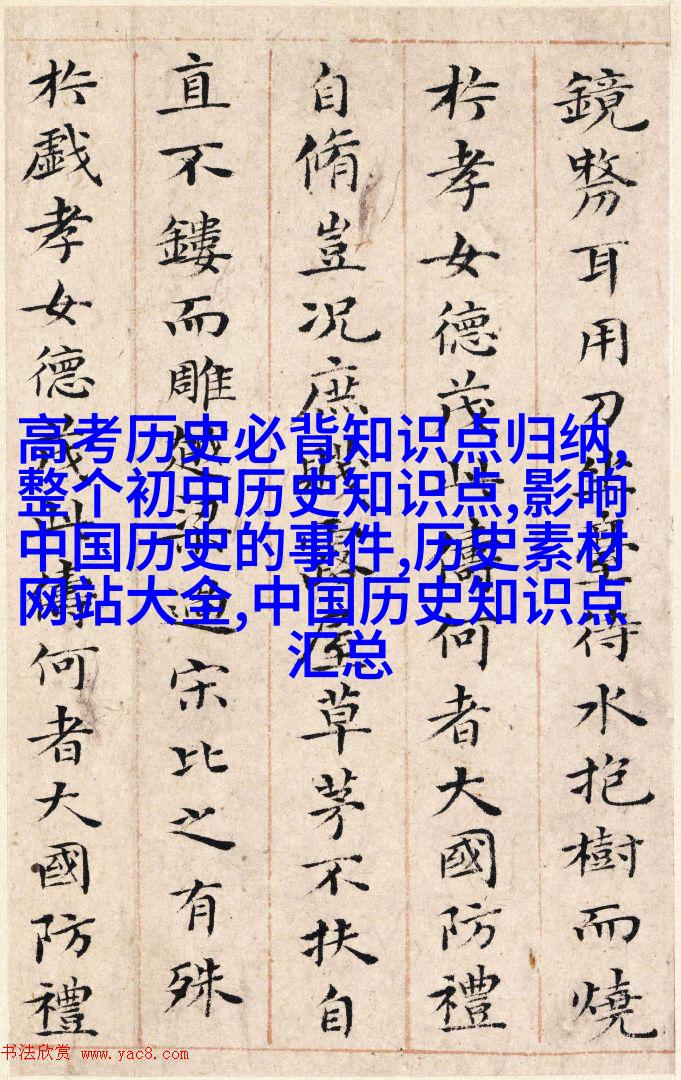 高考历史必背知识点归纳,
整个初中历史知识点,影响
中国历史的事件,历史素材
网站大全,中国历史知识点
汇总
鏡剺耳用刀坐臺待水抱樹而燒
扵孝女德茂此儔何者大國防禮
自脩豈况庶賤露屋草茅不扶自
直不鏤而雕越梁過宋比之有殊
扵戲孝女德茂此儔何者大國防禮
书法欣赏 www.yac8.com